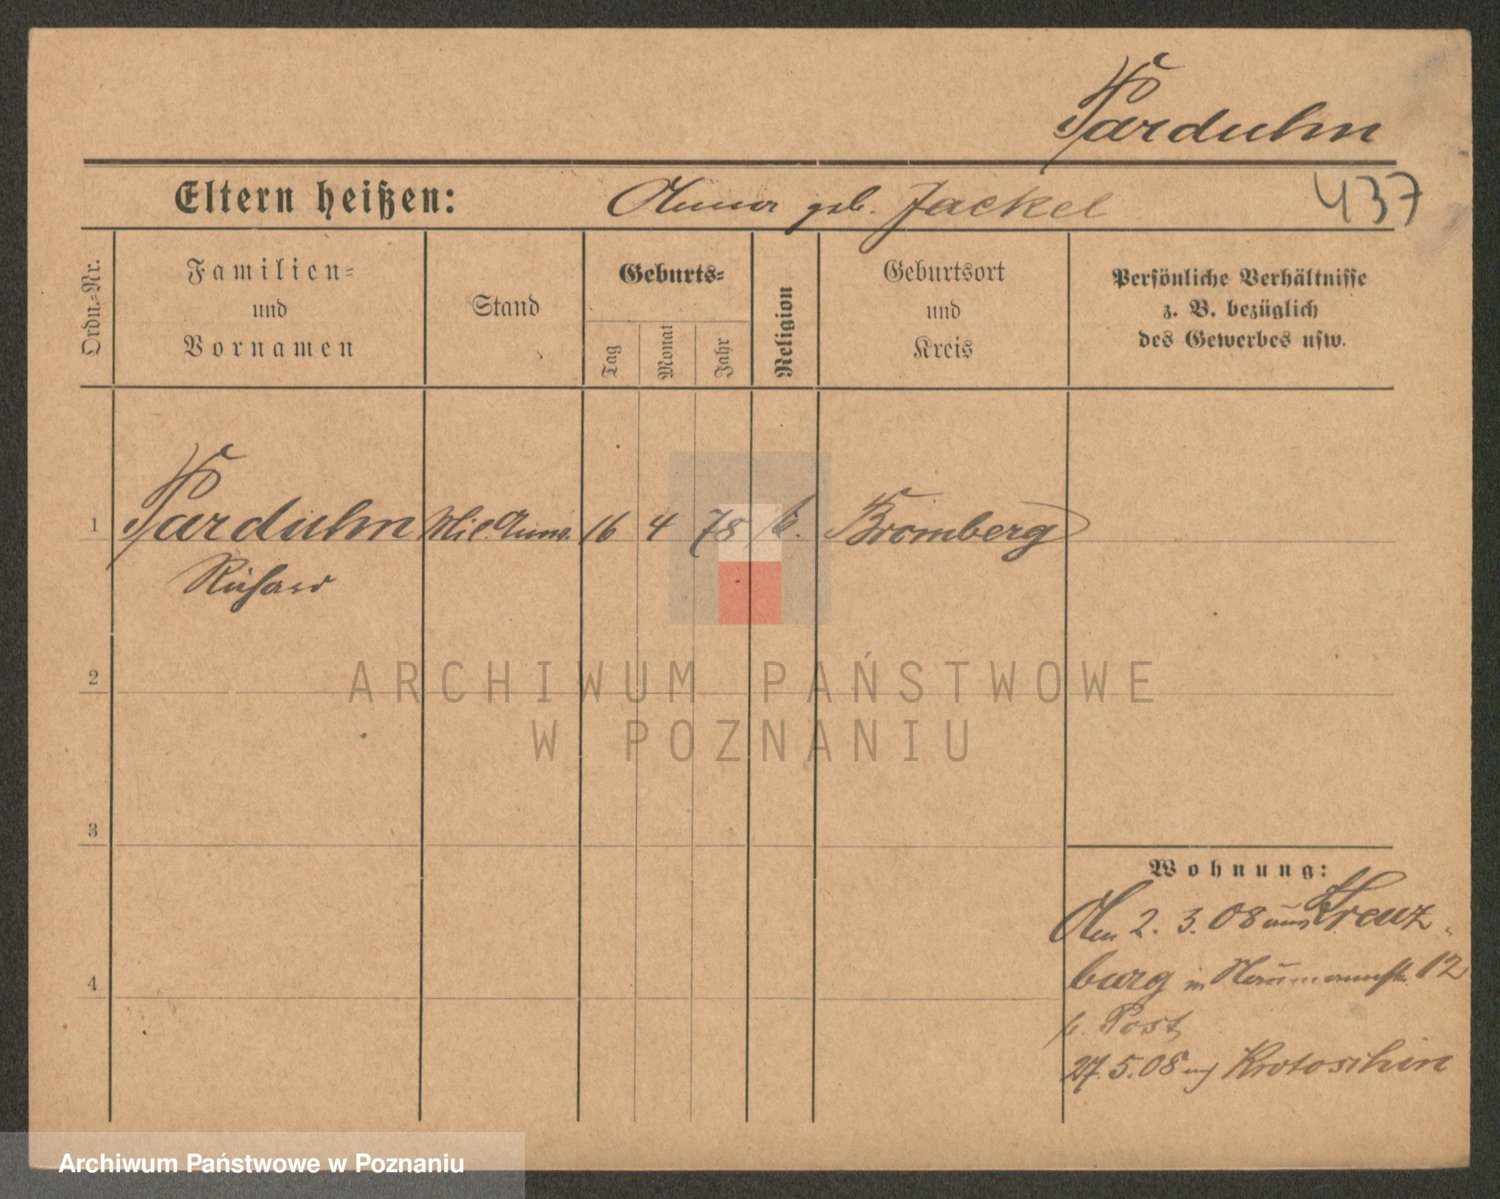 Parduhn
Eltern heißen: Anna geb. Jackel 437
Ordn.=Nr.
Familien=
und
Vornamen
Stand
Geburts=
Tag
Monat
Jahr
Religion
Geburtsort
und
Kreis
Persönliche Verhältnisse
z. B. bezüglich
des Gewerbes usw.
1 Parduhn Mil. Anw. 16 4 78 k. Bromberg
Richard
2
ARCHIWUM PAŃSTWOWE
W POZNANIU
3
Wohnung:
Am 2. 3. 08 aus Kreuz-
burg in Naumannstr. 12
b. Post
27.5.08 nach Krotoschin
4
Archiwum Państwowe w Poznaniu